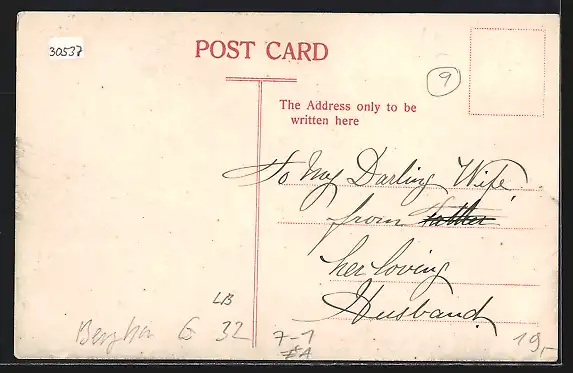 30537
POST CARD
9
The Address only to be
written here
To My Darling Wife
from father
her loving
Husband
LB
G 32
7-1
19,-